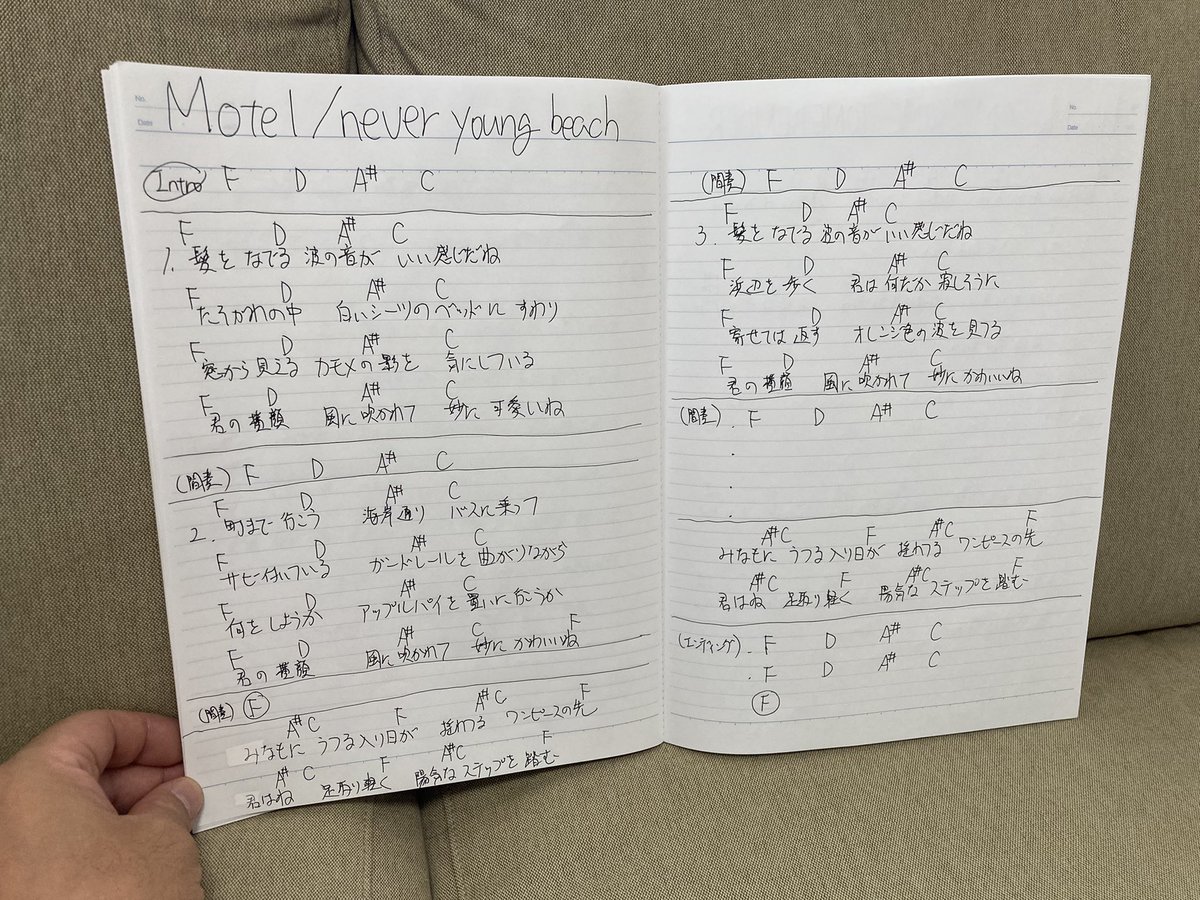 No.
Date
Motel/never young beach
Intro F D A# C
F D A# C
1. 髪を なでる 波の音が いい感じだね
F D A# C
たそがれの中 白いシーツのベッドに すわり
F D A# C
窓から見える カモメの影を 気にしている
F D A# C
君の横顔 風に吹かれて 妙に可愛いね
(間奏) F D A# C
F D A# C
2. 町まで行こう 海岸通り バスに乗って
F D A# C
サビ付いている ガードレールを曲がりながら
F D A# C
何をしようか アップルパイを買いに行こうか
F D A# C F
君の横顔 風に吹かれて 妙にかわいいね
(間奏) F
A# C F A# C F
みなもに うつる入り日が 揺れてる ワンピースの先
A# C F A# C F
君はね 足取り軽く 陽気なステップを踏む
No.
Date
(間奏) F D A# C
F D A# C
3. 髪を なでる 波の音が いい感じだね
F D A# C
浜辺を歩く 君は何だか寂しそうに
F D A# C
寄せては返す オレンジ色の波を見てる
F D A# C
君の横顔 風に吹かれて 妙にかわいいね
(間奏) . F D A# C
.
.
A# C F A# C F
みなもに うつる入り日が 揺れてる ワンピースの先
A# C F A# C F
君はね 足取り軽く 陽気なステップを踏む
(エンディング) . F D A# C
. F D A# C
F